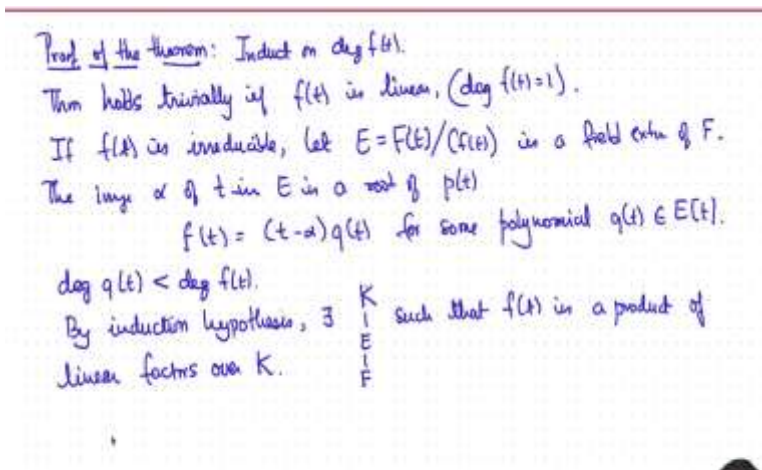 Proof of the theorem: Induct on deg f(t).
Thm holds trivially if f(t) is linear, (deg f(t)=1).
If f(t) is irreducible, let E = F[t]/(f(t)) is a field extn of F.
The image α of t in E is a root of p(t)
f(t) = (t-α) q(t) for some polynomial q(t) ∈ E[t].
deg q(t) < deg f(t).
By induction hypothesis, ∃ K | E | F such that f(t) is a product of
linear factors over K.